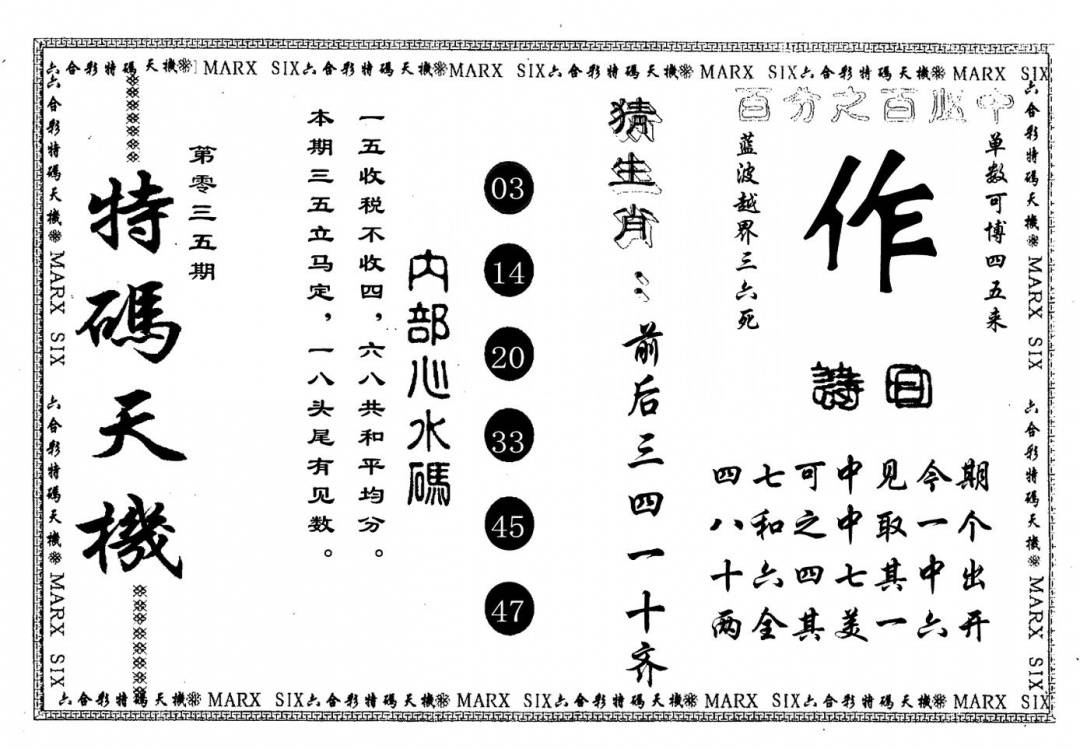 六合彩特碼天機 MARX SIX六合彩特碼天機 MARX SIX六合彩特碼天機 MARX SIX六合彩特碼天機 MARX SIX
六合彩特碼天機 MARX SIX 六合彩特碼天機 MARX SIX
特碼天機
第零三五期
本期三五立马定，一八头尾有见数。
一五收税不收四，六八共和平均分。
内部心水碼
03
14
20
33
45
47
猜生肖：前后三四一十齐
百分之百必中
蓝波越界三六死
作
单数可博四五来
詩曰
四七可中见今期
八和之中取一个
十六四七其中出
两全其美一六开
六合彩特碼天機 MARX SIX 六合彩特碼天機 MARX SIX
六合彩特碼天機 MARX SIX六合彩特碼天機 MARX SIX六合彩特碼天機 MARX SIX六合彩特碼天機 MARX SIX